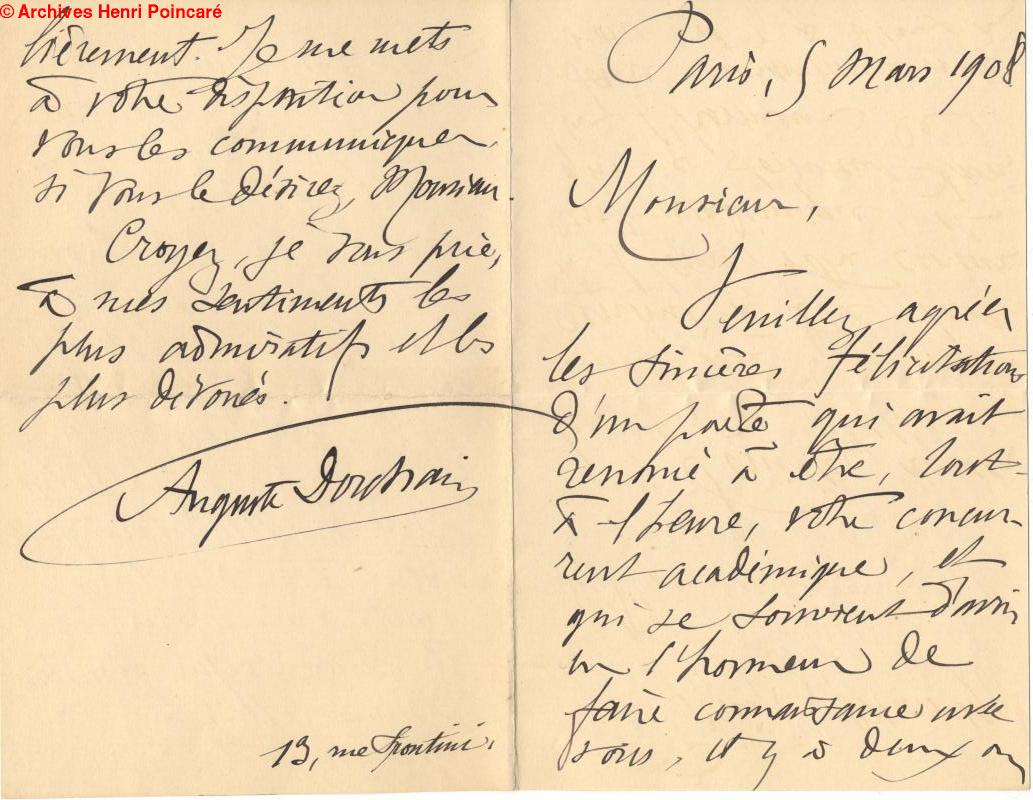 © Archives Henri Poincaré
Paris, 5 Mars 1908
Monsieur,
Veuillez agréer
les sincères félicitations
d'un poète qui avait
renoncé à être, tout-
à-l'heure, votre concur-
rent académique, et
qui se souvient d'avoir
eu l'honneur de
faire connaissance avec
vous, il y a deux ans
lièrement. Je me mets
à votre disposition pour
vous les communiquer,
si vous le désirez, Monsieur.
Croyez, je vous prie,
à mes sentiments les
plus admiratifs et les
plus dévoués.
Auguste Dorchain
13, rue